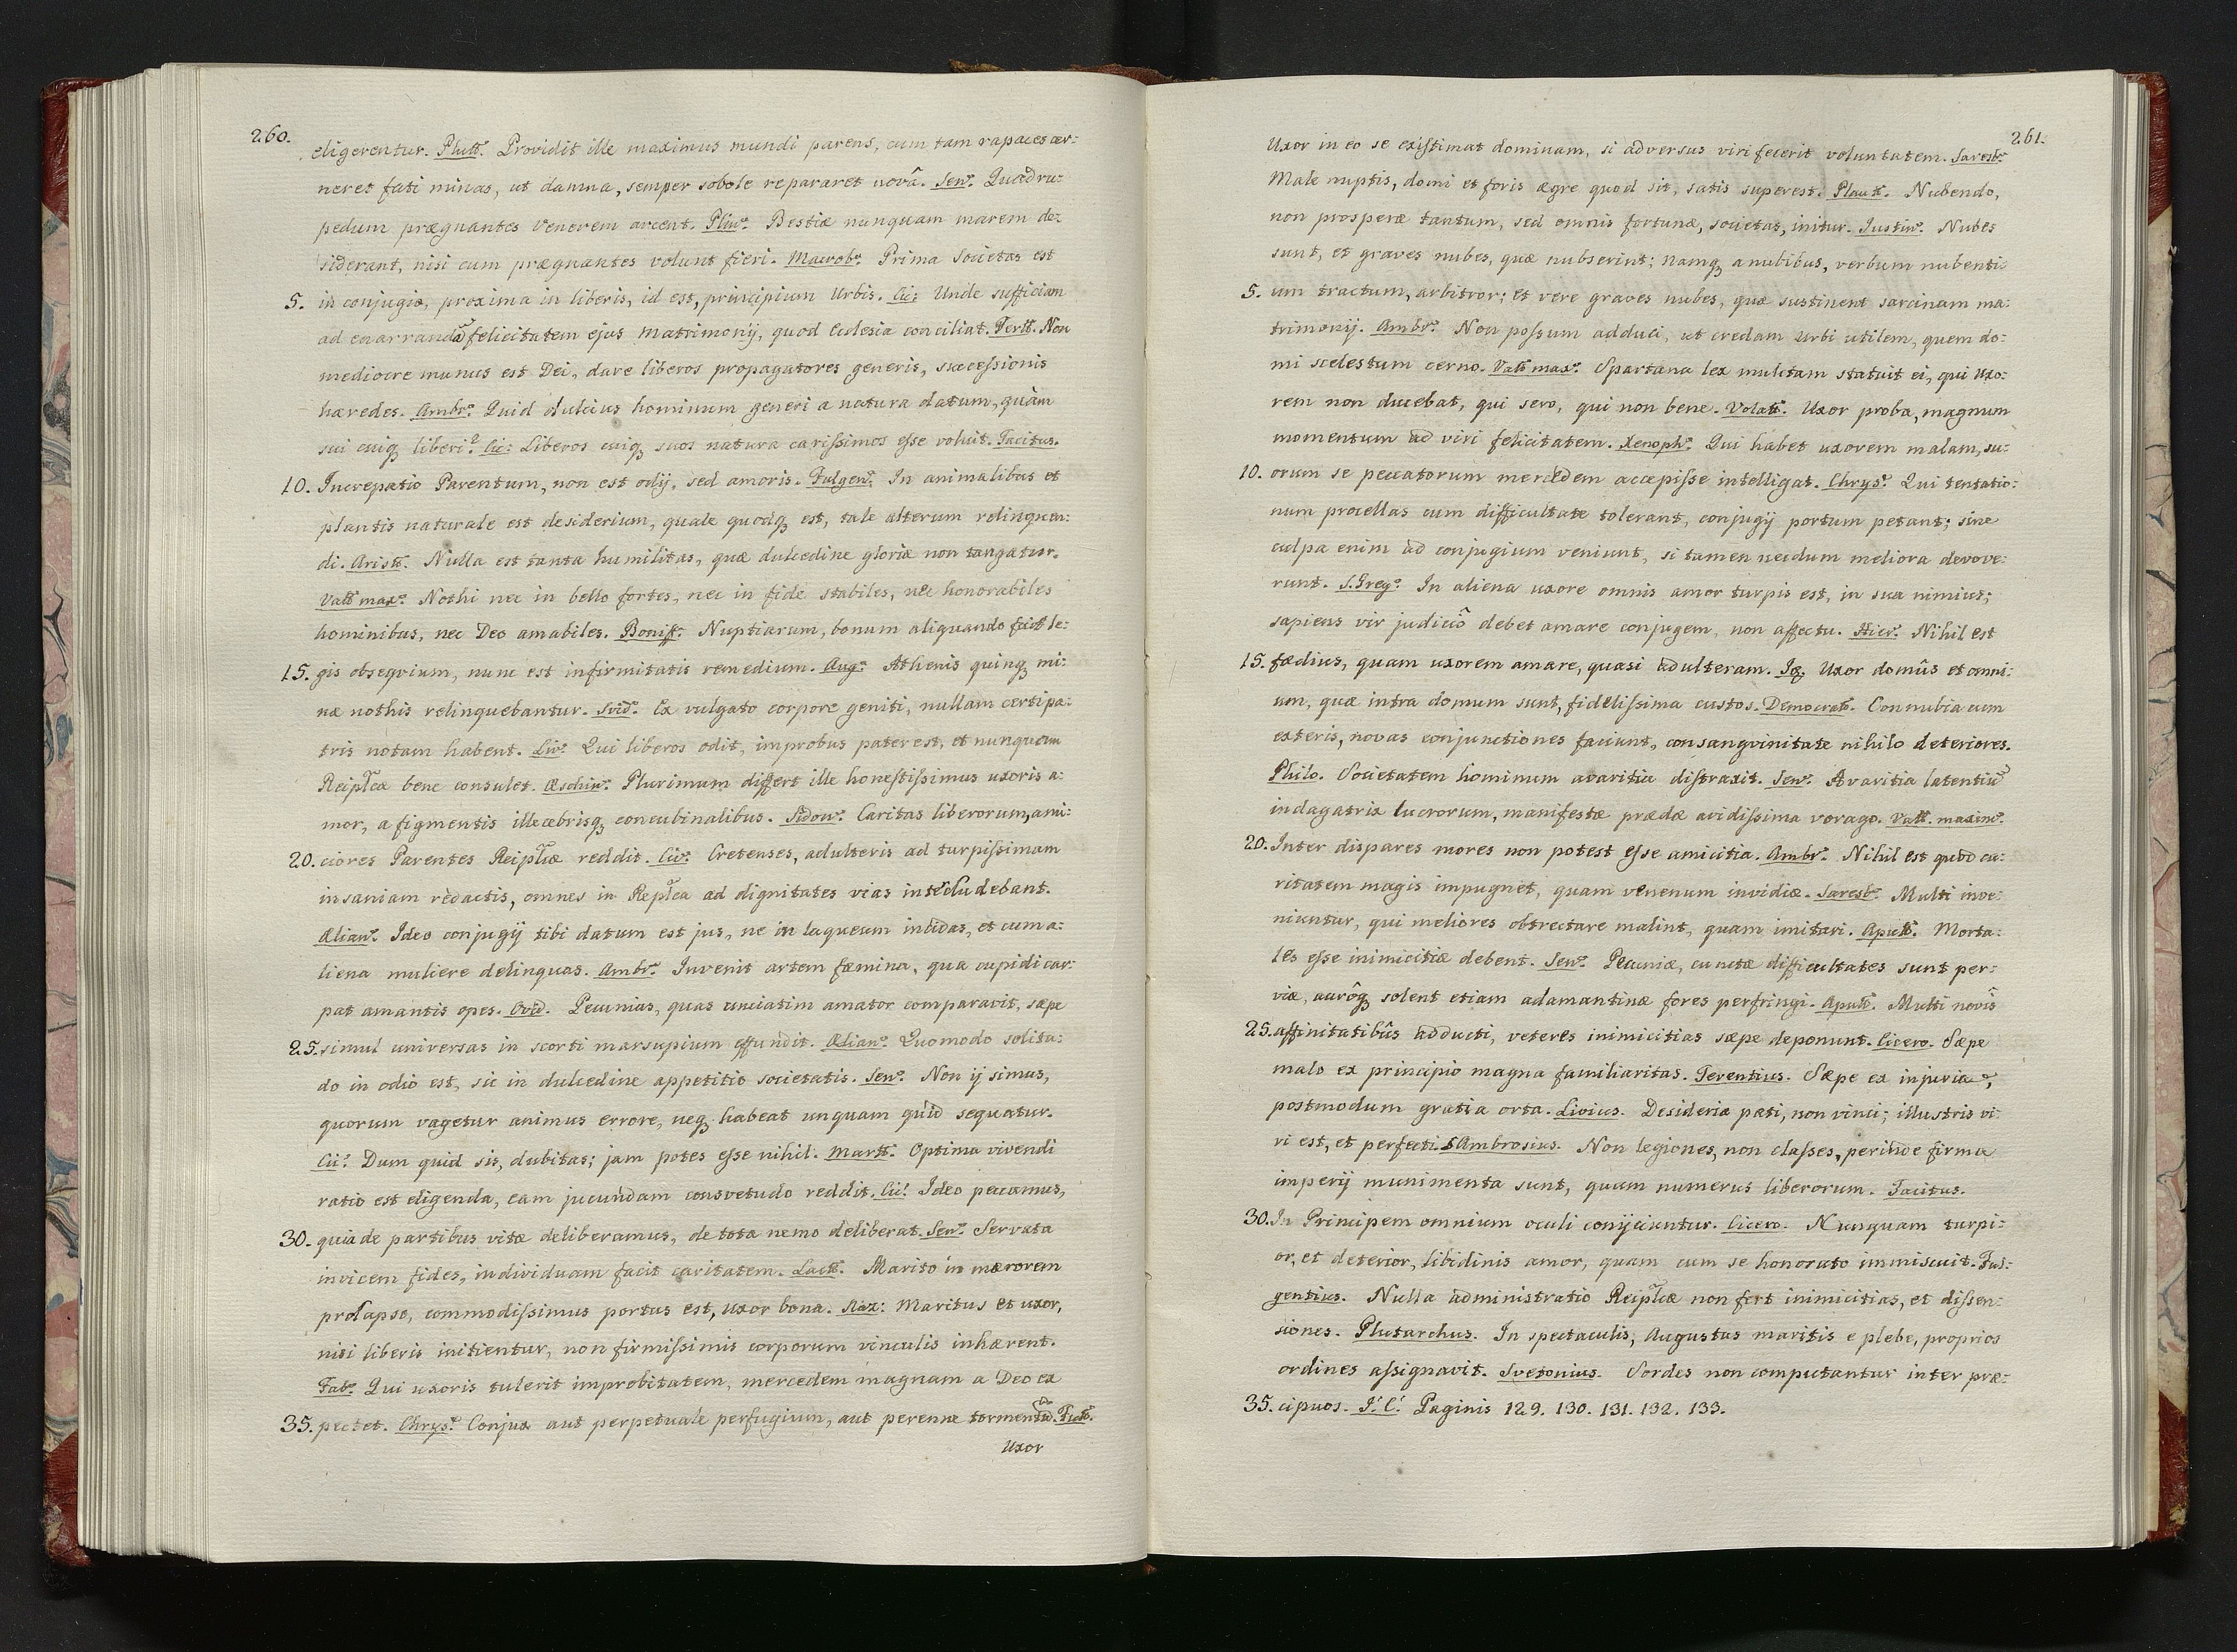 260.
eligerentur. Plutt. Providit ille maximus mundi parens, cum tam rapaces cer:
neret fati minas, ut damna, semper sobole repararet novâ. Sen. Quadru:
pedum prægnantes Venerem arcent. Plin. Bestiæ nunquam marem de:
siderant, nisi cum prægnantes volunt fieri. Macrob. Prima societas est
5. in conjugio, proxima in liberis, id est, principium Urbis. Cic: Unde sufficiam
ad enarrandã felicitatem ejus Matrimonij, quod Eclesia conciliat. Tertt. Non
mediocre munus est Dei, dare liberos propagatores generis, successionis
hæredes. Ambr. Quid dulcius hominum generi a natura datum, quàm
sui cuiq liberi? Cic: Liberos cuiq suos natura carissimos esse voluit. Tacitus.
10. Increpatio Parentum, non est odij, sed amoris. Fulgen. In animalibus et
plantis naturale est desiderium, quale quodq est, tale alterum relinquen:
di. Aristt. Nulla est tanta humilitas, quæ dulcedine gloriæ non tangatur.
Vall max. Nothi nec in bello fortes, nec in fide stabiles, nec honorabiles
hominibus, nec Deo amabiles. Boniff. Nuptiarum, bonum aliquando fuit le:
15. gis obseqvium, nunc est infirmitatis remedium. Aug. Athenis quinq mi:
næ nothis relinquebantur. Svid. Ex vulgato corpore geniti, nullam certi pa:
tris notam habent. Liv. Qui liberos odit, improbus pater est, et nunquam
Reiplcæ bene consulet. Æschin. Plurimum differt ille honestissimus uxoris a:
mor, a figmentis illecebrisq concubinalibus. Sidon. Caritas liberorum, ami:
20. ciores Parentes Reiplcæ reddit. Civ. Cretenses, adulteris ad turpissimam
insaniam redactis, omnes in Replca ad dignitates vias intecludebant.
Ælian. Ideo conjugij tibi datum est jus, ne in laqueum incidas, et cum a:
liena muliere delinquas. Ambr. Invenit artem fæmina, qua cupidi car:
pat amantis opes. Ovid. Pecunias, quas unciatim amator comparavit, sæpe
25. simul universas in scorti marsupium effundit. Ælian. Quomodo solitu:
do in odio est, sic in dulcedine appetitio societatis. Sen. Non ij simus,
quorum vagetur animus errore, neq habeat unquam quid sequatur.
Cic. Dum quid sis, dubitas; jam potes esse nihil. Martt. Optima vivendi
ratio est eligenda, eam jucundam consvetudo reddit. Cic! Ideo peccamus,
30. quia de partibus vitæ deliberamus, de tota nemo deliberat. Sen. Servata
invicem fides, individuam facit caritatem. Lactt. Marito in mærorem
prolapso, commodissimus portus est, uxor bona. Naz: Maritus et uxor,
nisi liberis initientur, non firmissimis corporum vinculis inhærent.
Fab. Qui uxoris tulerit improbitatem, mercedem magnam a Deo ex
35. pectet. Chrys. Conjux aut perpetuale perfugium, aut perenne tormentũ.
Uxor
261.
Uxor in eo se existimat dominam, si adversus viri fecerit voluntatem. Saresb.
Male nuptis, domi et foris ægre quod sit, satis superest. Plautt. Nubendo,
non prosperæ tantum, sed omnis fortunæ, societas, initur. Justin. Nubes
sunt, et graves nubes, quæ nubserint; namq a nubibus, verbum nubenti
5. um tractum, arbitror; et vere graves nubes, quæ sustinent sarcinam ma:
trimonij. Ambr. Non possum adduci, ut credam Urbi utilem, quem do:
mi scelestum cerno. Vall max. Spartana lex mulctam statuit ei, qui Uxo:
rem non ducebat, qui sero, qui non bene. Volatt. Uxor proba, magnum
momentum ad viri felicitatem. Xenoph. Qui habet uxorem malam, su:
10. orum se peccatorum mercedem accepisse intelligat. Chrys. Qui tentatio:
num procellas cum difficultate tolerant, conjugij portum petant; sine
culpa enim ad conjugium veniunt, si tamen necdum meliora devove:
runt. S. Greg. In aliena uxore omnis amor turpis est, in sua nimius;
sapiens vir judiciô debet amare conjugem, non affectu. Hier. Nihil est
15. fædius, quam uxorem amare, quasi adulteram. Iq. Uxor domûs et omni:
um, quæ intra domum sunt, fidelissima custos. Democratt. Connubia cum
exteris, novas conjunctiones faciunt, consangvinitate nihilo deteriores.
Philo. Societatem hominum avaritia distraxit. Sen. Avaritia latentiũ
indagatrix lucrorum, manifestæ prædæ avidissima vorago. Vall. maxim.
20. Inter dispares mores non potest esse amicitia. Ambr. Nihil est quod ca:
ritatem magis impugnet, quam venenum invidiæ. Saresb. Multi inve:
niuntur, qui meliores obtrectare malint, quam imitari. Apull. Morta:
les esse inimicitiæ debent. Sen. Pecuniæ, cunctæ difficultates sunt per:
viæ, aurôq solent etiam adamantinæ fores perfringi. Apull. Multi novîs
25. affinitatibûs adducti, veteres inimicitias sæpe deponunt. Cicero. Sæpe
malo ex principio magna familiaritas. Terentius. Sæpe ex injuria,
postmodum gratia orta. Livius. Desideria pati, non vinci; illustris vi:
ri est, et perfecti. S Ambrosius. Non legiones, non classes, perinde firma
imperij munimenta sunt, quam numerus liberorum. Tacitus.
30. In Principem omnium oculi conijciuntur. Cicero. Nunquam turpi:
or, et deterior, libidinis amor, quam cum se honorato immiscuit. Ful:
gentius. Nulla administratio Reiplcæ non fert inimicitias, et dissen:
siones. Plutarchus. In spectaculis, Augustus maritis e plebe, proprios
ordines assignavit. Svetonius. Sordes non computantur inter præ:
35. cipuos. I! C! Paginis 129. 130. 131. 132. 133.